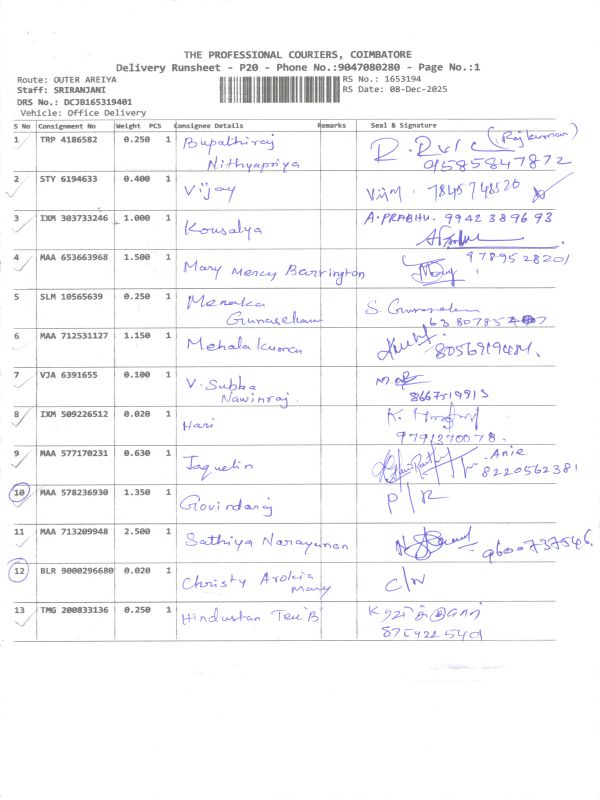 THE PROFESSIONAL COURIERS, COIMBATORE
Delivery Runsheet - P20 - Phone No.:9047080280 - Page No.:1
Route: OUTER AREIYA RS No.: 1653194
Staff: SRIRANJANI RS Date: 08-Dec-2025
DRS No.: DCJB165319401
Vehicle: Office Delivery
S No Consignment No Weight PCS Consignee Details Remarks Seal & Signature
1 TRP 4186582 0.250 1 Bupathiraj (Rajkumar)
Nithyapriya 9585847872
2 STY 6194633 0.400 1 Vijay Vijay. 7845748520
3 IXM 303733246 1.000 1 Kousalya A.PRABHU. 9942389693
4 MAA 653663968 1.500 1 Mary Mercy Barrington 9789528201
5 SLM 10565639 0.250 1 Menaka S. Gunasekaran
Gunasekaran
6 MAA 712531127 1.150 1 Mehalakumar
7 VJA 6391655 0.100 1 V. Subba
Nawinraj. 8667519913
8 IXM 509226512 0.020 1 Hari 9791370078.
9 MAA 577170231 0.630 1 Jaquelin Anie
8220562381
10 MAA 578236930 1.350 1 Govindaraj P/R
11 MAA 713209948 2.500 1 Sathiya Narayanan 9600737546.
12 BLR 9000296680 0.020 1 Christy Arokia C/N
Mary
13 TMG 200833136 0.250 1 Hindustan Tec B